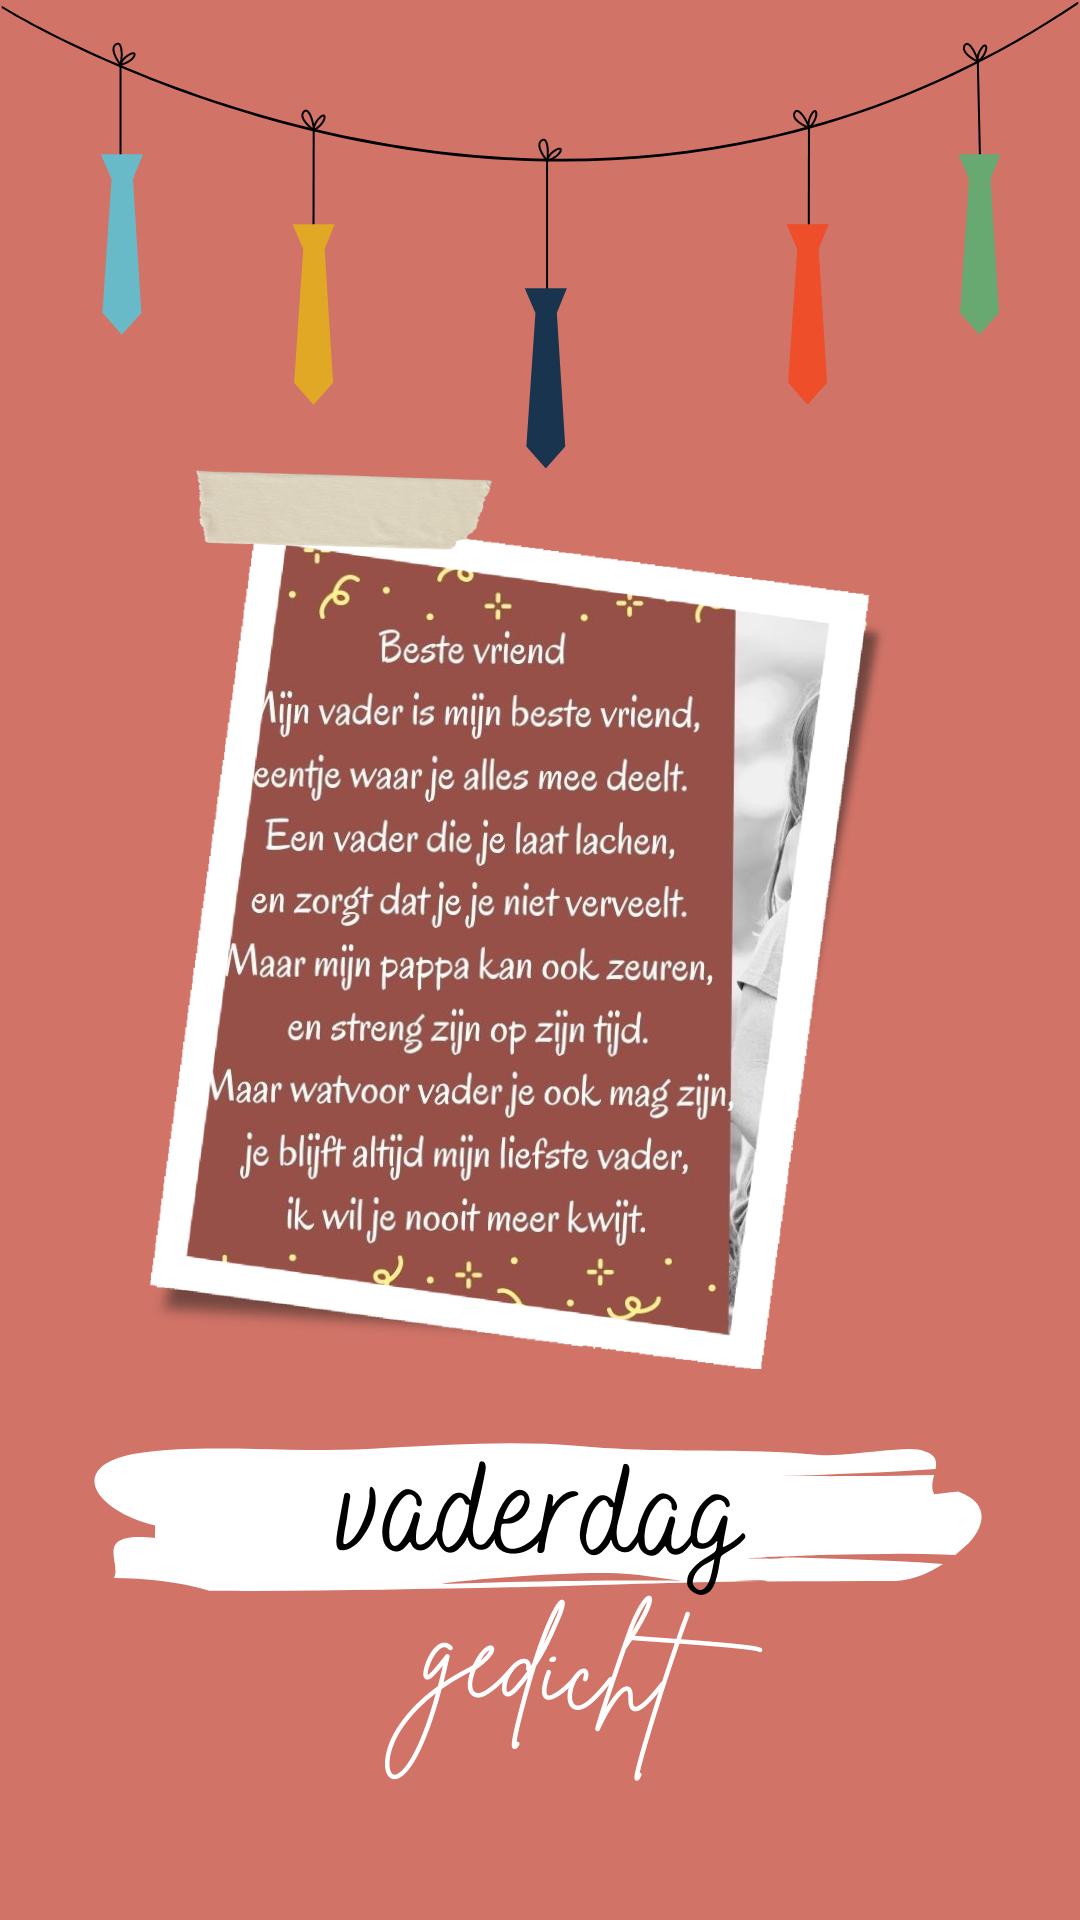 Beste vriend
Mijn vader is mijn beste vriend,
eentje waar je alles mee deelt.
Een vader die je laat lachen,
en zorgt dat je je niet verveelt.
Maar mijn pappa kan ook zeuren,
en streng zijn op zijn tijd.
Maar watvoor vader je ook mag zijn,
je blijft altijd mijn liefste vader,
ik wil je nooit meer kwijt.
vaderdag
gedicht